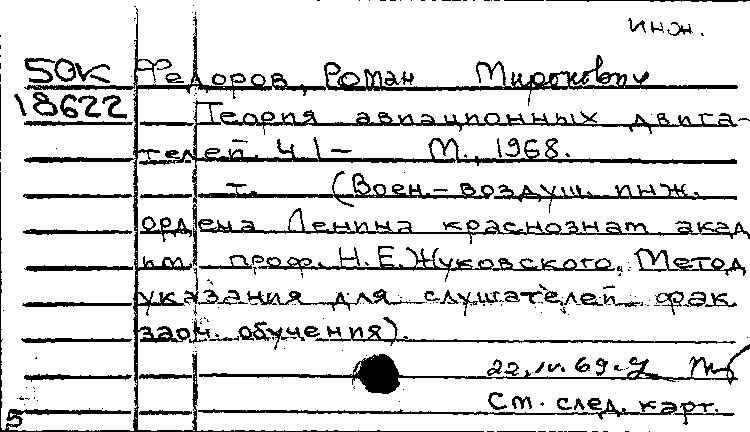 инж.
50К Федоров, Роман Миронович
18622 Теория авиационных двига-
телей. Ч I – М., 1968.
т. (Воен.-воздуш. инж.
ордена Ленина краснознам акад
им. проф. Н.Е.Жуковского. Метод
указания для слушателей фак
заоч. обучения).
22.IV.69.
См. след. карт.
5